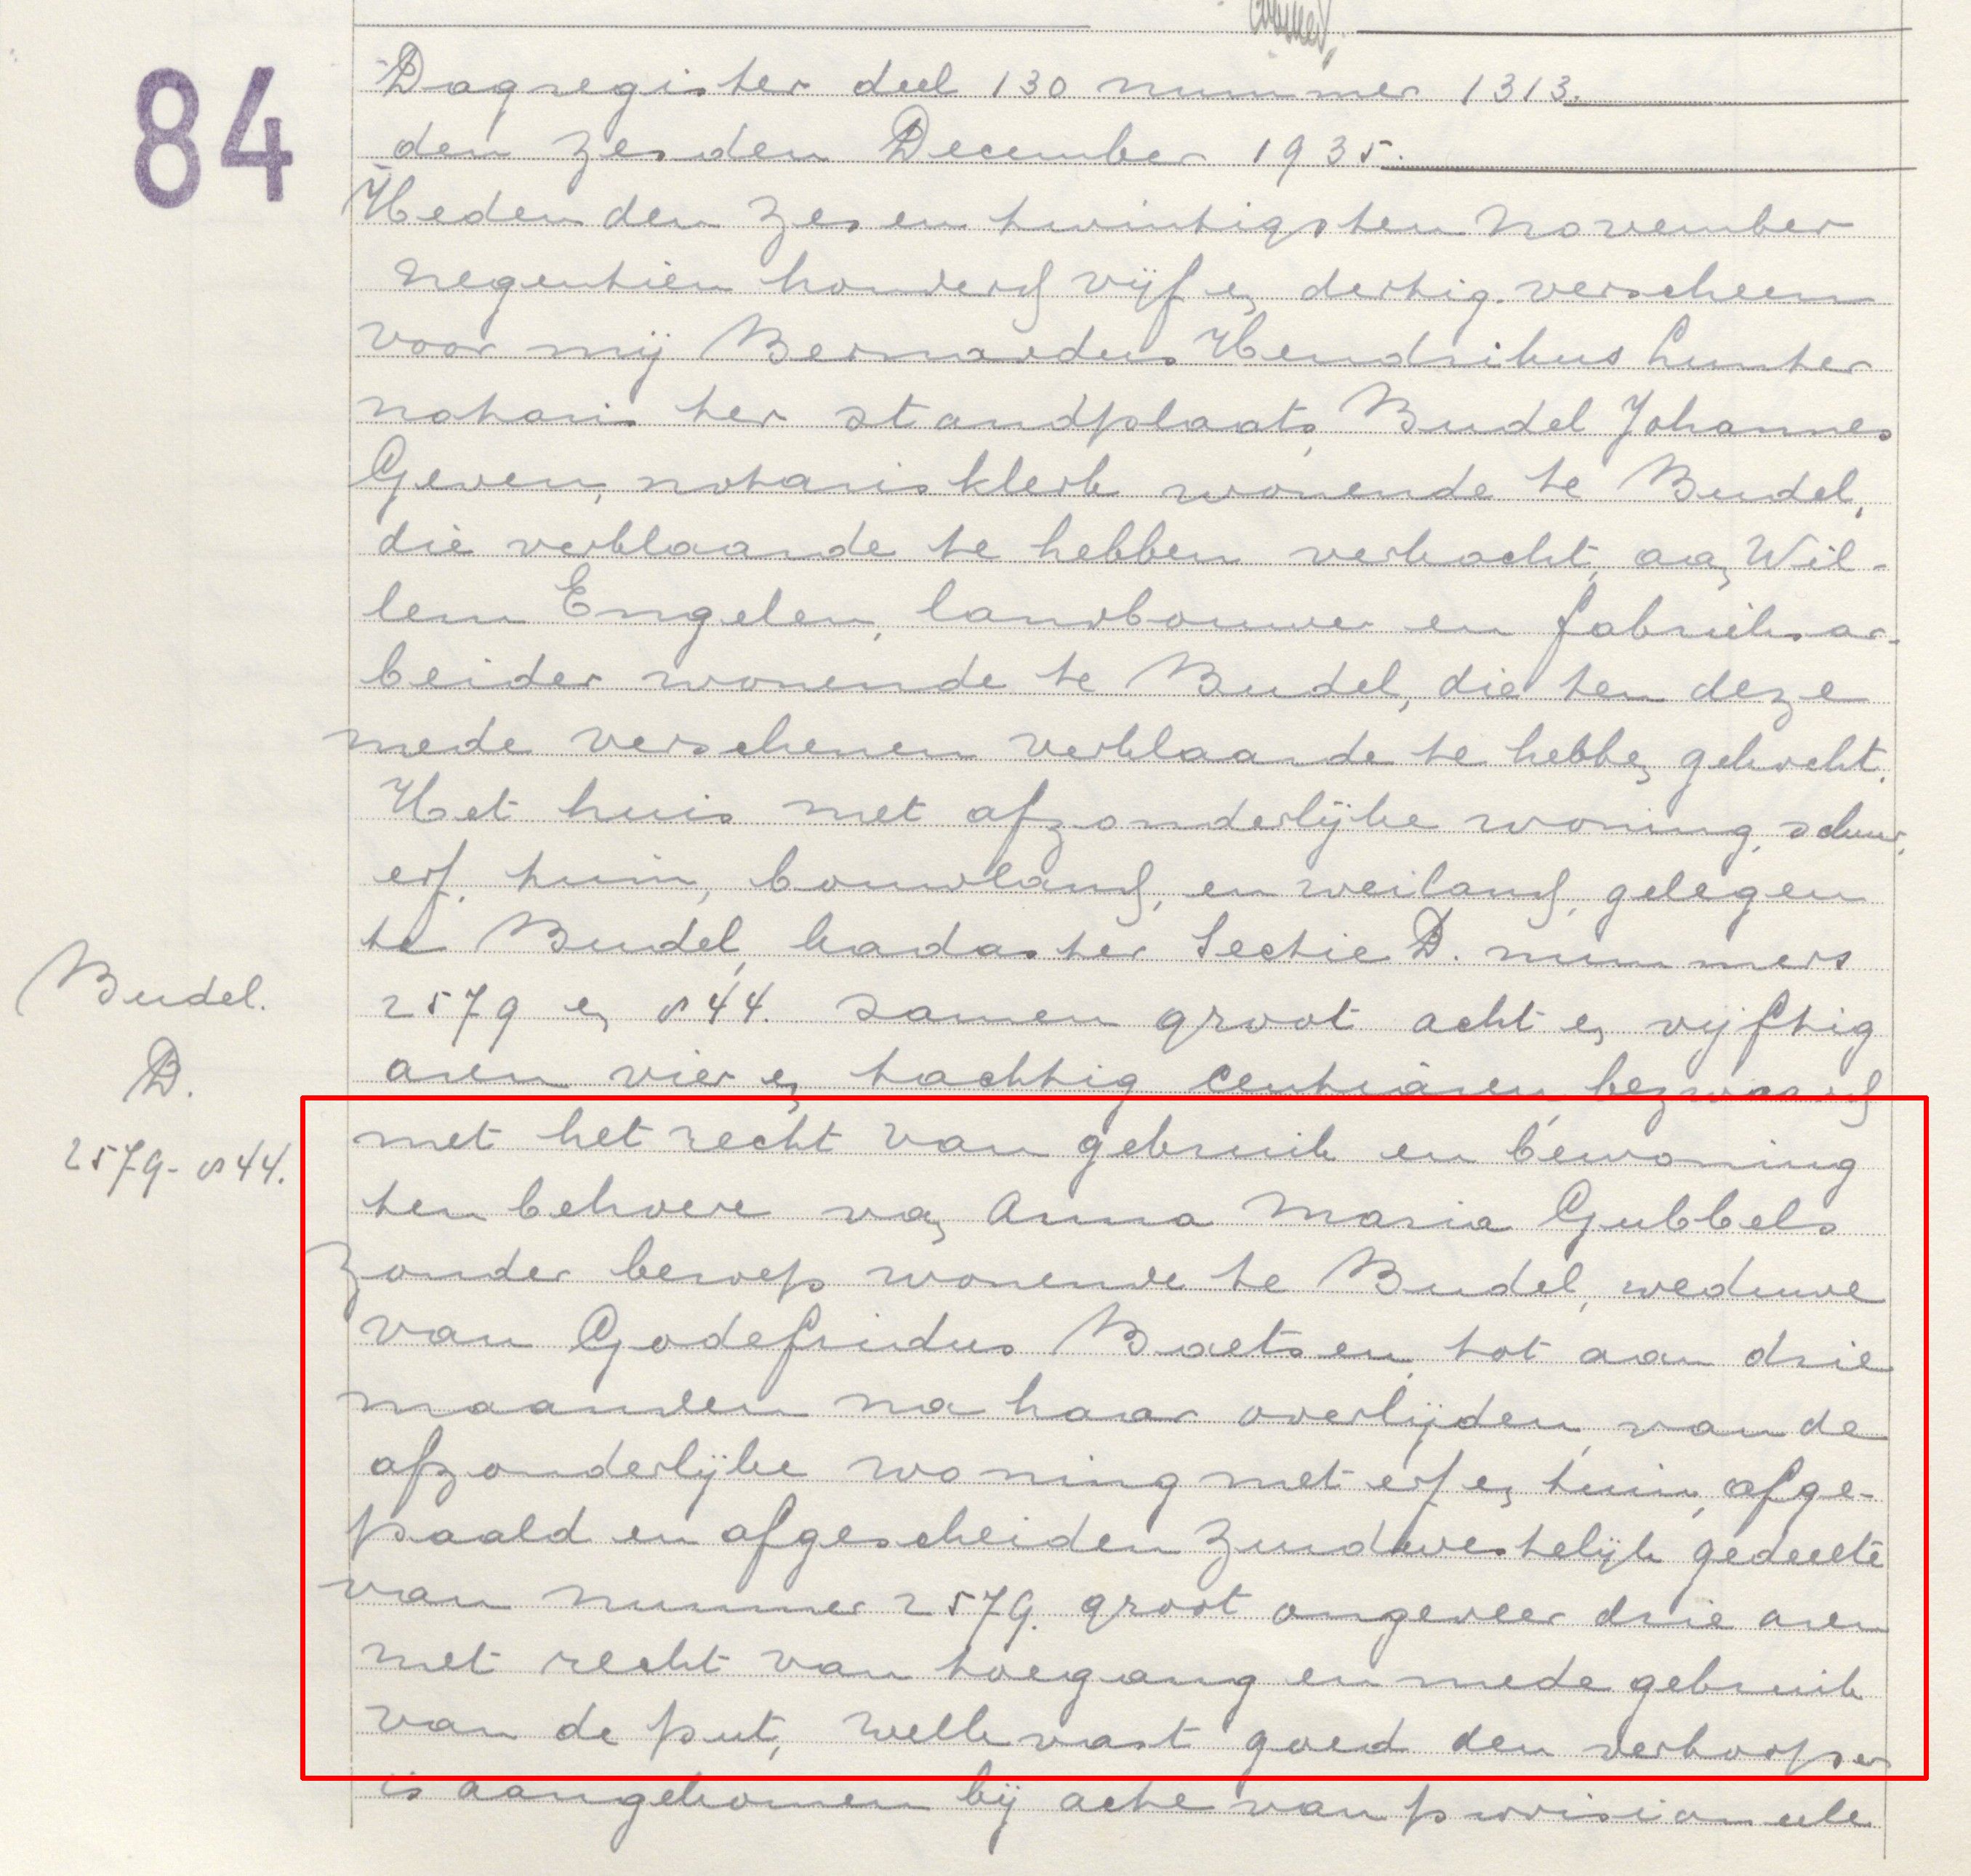 84
Dagregister deel 130 nummer 1313.
den zesden December 1935.
Heden den zes en twintigsten November
negentien honderd vijf en dertig verscheen
voor mij Bernardus Hendrikus Lunter
notaris ter standplaats Budel Johannes
Geven, notarisklerk wonende te Budel,
die verklaarde te hebben verkocht, aan Wil-
lem Engelen, landbouwer en fabrieksar-
beider wonende te Budel, die ten deze
mede verschenen verklaarde te hebben gekocht.
Het huis met afzonderlijke woning, schuur,
erf, tuin, bouwland, en weiland, gelegen
te Budel, kadaster Sectie D. nummers
2579 en 844. samen groot acht en vijftig
aren vier en tachtig centiaren, bezwaard
Budel.
D.
2579-844.
met het recht van gebruik en bewoning
ten behoeve van Anna Maria Gubbels
zonder beroep wonende te Budel, weduwe
van Godefridus Baetsen, tot aan drie
maanden na haar overlijden, van de
afzonderlijke woning met erf en tuin, afge-
paald en afgescheiden zuidwestelijk gedeelte
van nummer 2579. groot ongeveer drie aren
met recht van toegang en mede gebruik
van de put, welk vast goed den verkooper
is aangekomen bij acte van provisioneele